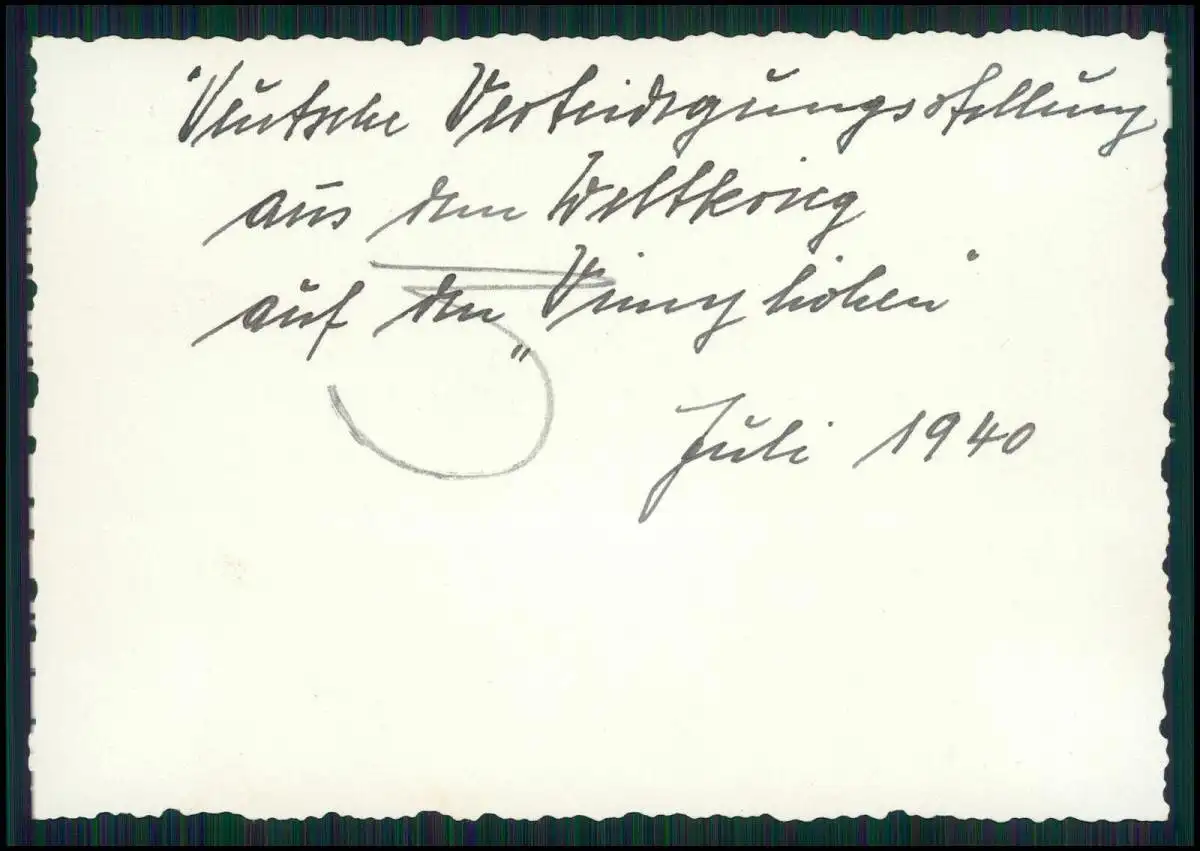 Deutsche Verteidigungsstellung
aus dem Weltkrieg
auf den „Vimyhöhen“
Juli 1940